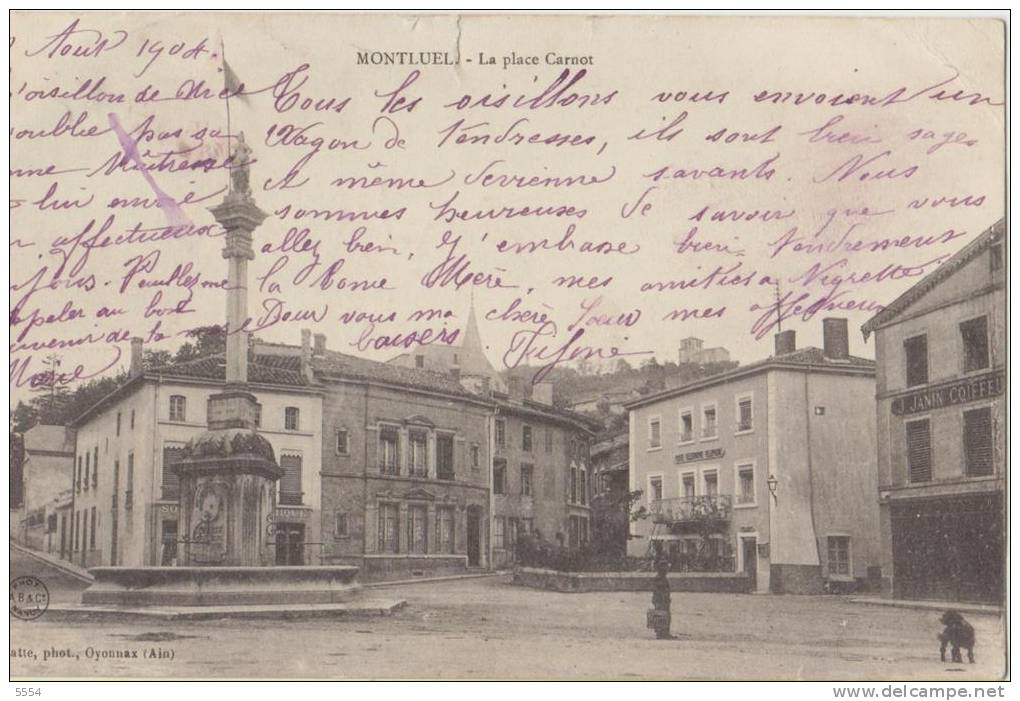 MONTLUEL. - La place Carnot
Août 1904.
l'oisillon de Nice
oublie pas sa
Maîtresse
lui envoie
affectueux
Veuillez me
rappeler au bon
souvenir de la
Marie
Tous les oisillons vous envoient un
Wagon de tendresses, ils sont bien sages
et même devienne savants. Nous
sommes heureuses de savoir que vous
allez bien, j'embrasse bien tendrement
la bonne Mère, mes amitiés à Nigrette
Pour vous ma chère Soeur mes affectueux
baisers
J. JANIN COIFFEUR
PHOT
A B & Cie
NANCY
atte, phot., Oyonnax (Ain)
5554
www.delcampe.net